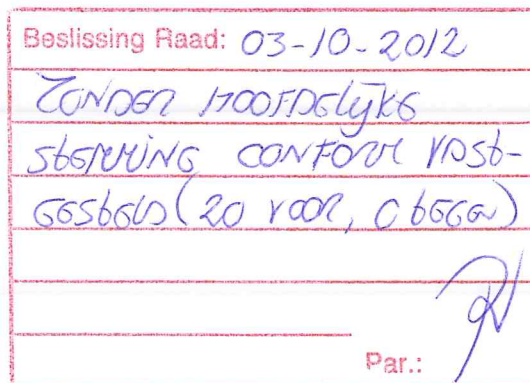 Beslissing Raad: 03-10-2012
ZONDER HOOFDELIJKE
STEMMING CONFORM VAST-
GESTELD (20 VOOR, 0 TEGEN)
Par.: